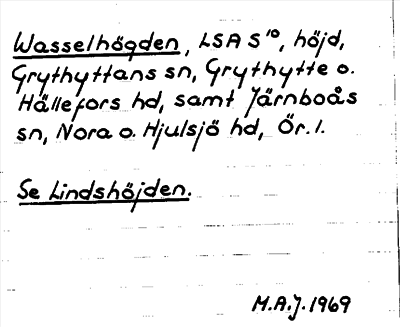 Wasselhögden, LSA S¹⁰, höjd,
Grythyttans sn, Grythytte o.
Hällefors hd, samt Järnboås
sn, Nora o. Hjulsjö hd, Ör. l.
Se Lindshöjden.
M.A.J. 1969